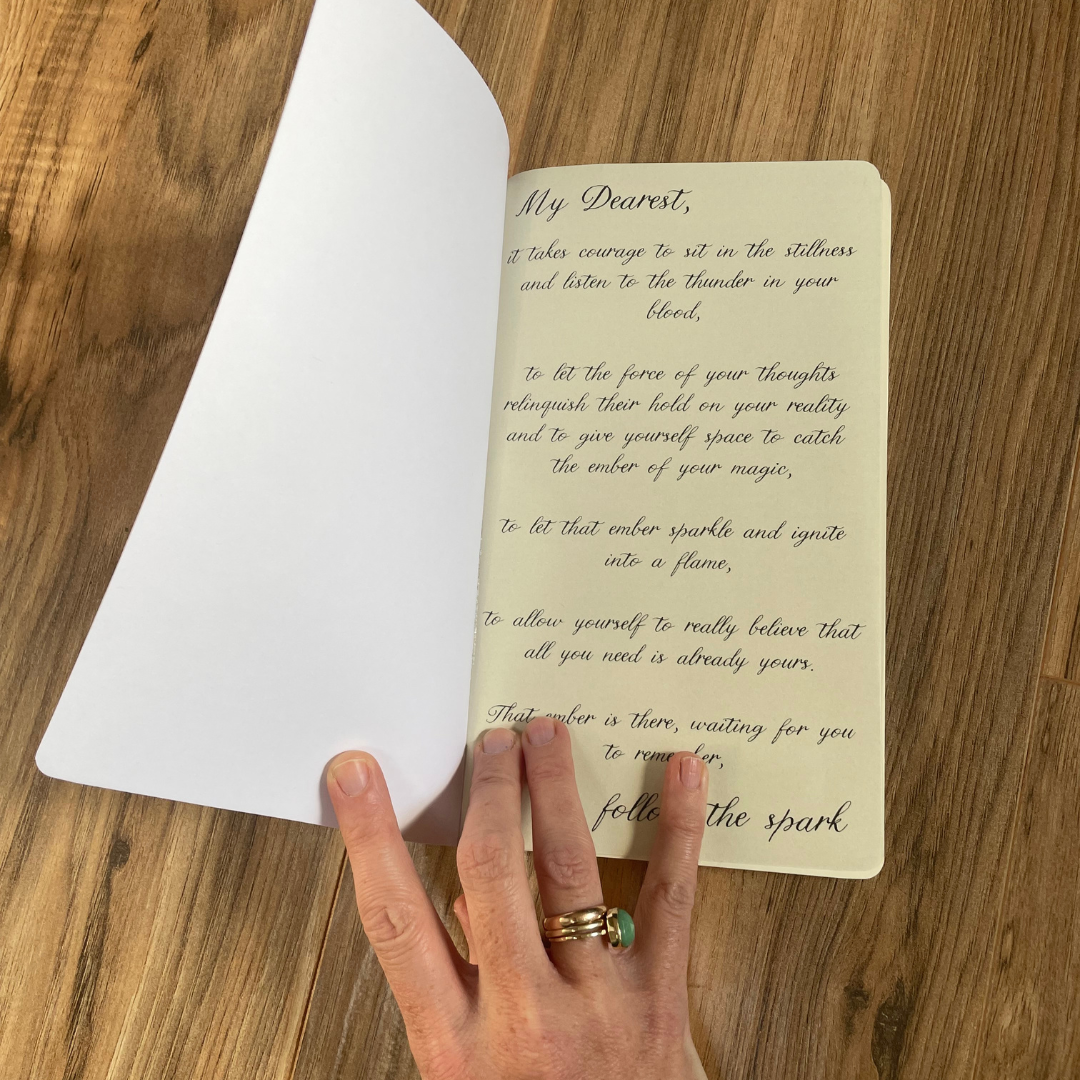 My Dearest,
it takes courage to sit in the stillness
and listen to the thunder in your
blood,
to let the force of your thoughts
relinquish their hold on your reality
and to give yourself space to catch
the ember of your magic,
to let that ember sparkle and ignite
into a flame,
to allow yourself to really believe that
all you need is already yours.
That ember is there, waiting for you
to remember,
follow the spark